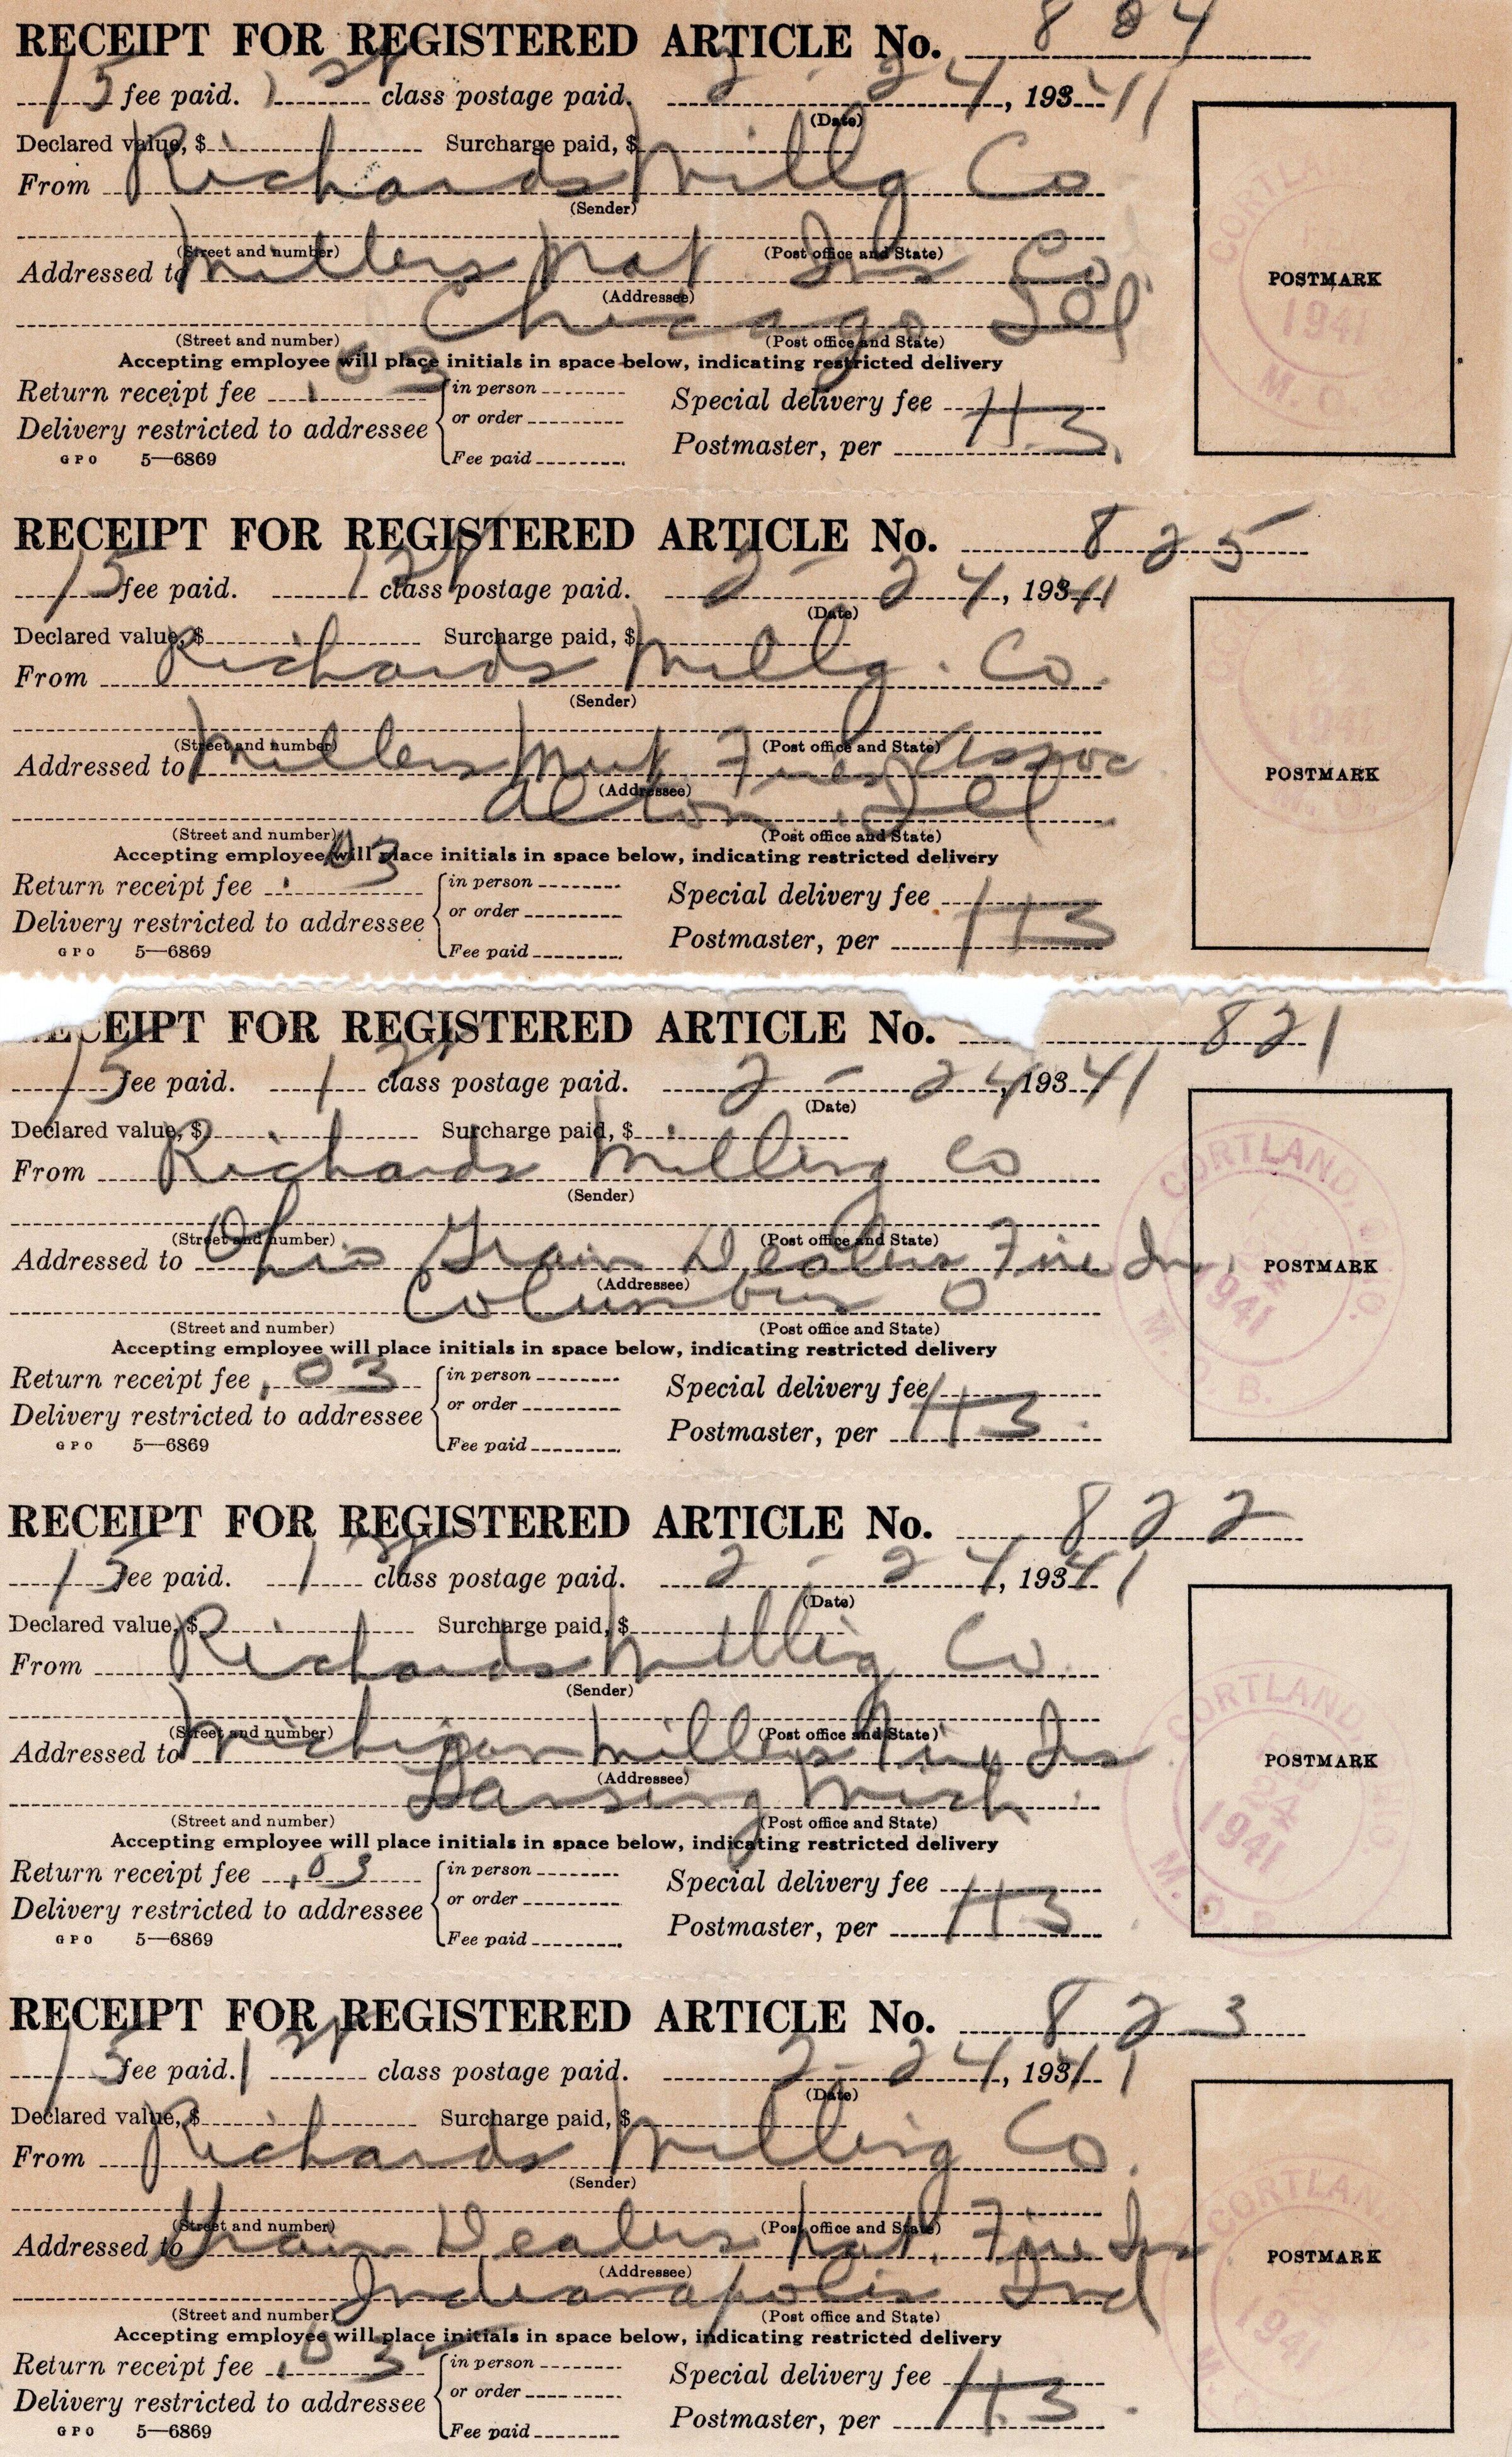 RECEIPT FOR REGISTERED ARTICLE No. 824
15 fee paid. 1st class postage paid. 2-24, 19341
(Date)
Declared value, $ Surcharge paid, $
From Richards Millg Co
(Sender)
(Street and number) (Post office and State)
Addressed to Millers Nat Ins Co
(Addressee)
Chicago Ill
(Street and number) (Post office and State)
Accepting employee will place initials in space below, indicating restricted delivery
Return receipt fee .03 in person Special delivery fee
Delivery restricted to addressee or order
Postmaster, per HB
Fee paid
GPO 5—6869
POSTMARK
CORTLA
194
M. O
RECEIPT FOR REGISTERED ARTICLE No. 825
15 fee paid. 1st class postage paid. 2-24, 19341
(Date)
Declared value, $ Surcharge paid, $
From Richards Millg. Co.
(Sender)
(Street and number) (Post office and State)
Addressed to Millers Mut Fire Assoc
(Addressee)
Alton, Ill.
(Street and number) (Post office and State)
Accepting employee will place initials in space below, indicating restricted delivery
Return receipt fee .03 in person Special delivery fee
Delivery restricted to addressee or order
Postmaster, per HB
Fee paid
GPO 5—6869
POSTMARK
1941
RECEIPT FOR REGISTERED ARTICLE No. 821
15 fee paid. 1st class postage paid. 2-24, 19341
(Date)
Declared value, $ Surcharge paid, $
From Richards Milling Co
(Sender)
(Street and number) (Post office and State)
Addressed to Ohio Grain Dealers Fire In,
(Addressee)
Columbus O
(Street and number) (Post office and State)
Accepting employee will place initials in space below, indicating restricted delivery
Return receipt fee .03 in person Special delivery fee
Delivery restricted to addressee or order
Postmaster, per HB.
Fee paid
GPO 5—6869
POSTMARK
CORTLAND, O.
1941
M. O. B.
RECEIPT FOR REGISTERED ARTICLE No. 822
15 fee paid. 1st class postage paid. 2-24, 19341
(Date)
Declared value, $ Surcharge paid, $
From Richards Milling Co.
(Sender)
(Street and number) (Post office and State)
Addressed to Michigan Millers Fire Ins
(Addressee)
Lansing Mich.
(Street and number) (Post office and State)
Accepting employee will place initials in space below, indicating restricted delivery
Return receipt fee .03 in person Special delivery fee
Delivery restricted to addressee or order
Postmaster, per HB
Fee paid
GPO 5—6869
POSTMARK
CORTLAND, O.
24
1941
M. O. B.
RECEIPT FOR REGISTERED ARTICLE No. 823
15 fee paid. 1st class postage paid. 2-24, 19341
(Date)
Declared value, $ Surcharge paid, $
From Richards Milling Co.
(Sender)
(Street and number) (Post office and State)
Addressed to Grain Dealers Nat. Fire Ins.
(Addressee)
Indianapolis Ind
(Street and number) (Post office and State)
Accepting employee will place initials in space below, indicating restricted delivery
Return receipt fee .03 in person Special delivery fee
Delivery restricted to addressee or order
Postmaster, per HB.
Fee paid
GPO 5—6869
POSTMARK
CORTLAN
1941
M.